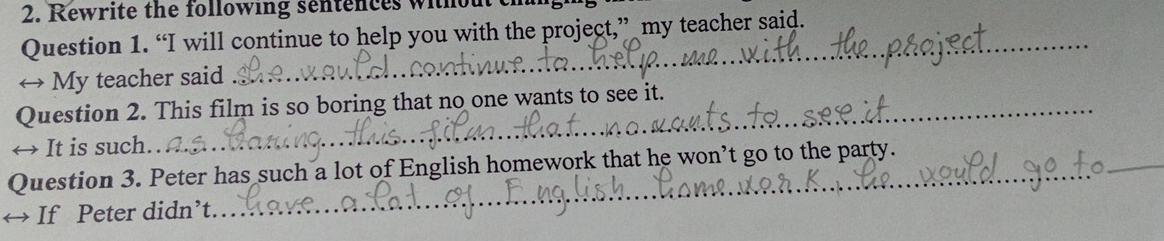 2. Rewrite the following sentences without
Question 1. “I will continue to help you with the project,” my teacher said.
↔ My teacher said she would continue to help me with the project
Question 2. This film is so boring that no one wants to see it.
↔ It is such as boring this film that no wants to see it
Question 3. Peter has such a lot of English homework that he won’t go to the party.
↔ If Peter didn’t have a lot of English homework, he would go to